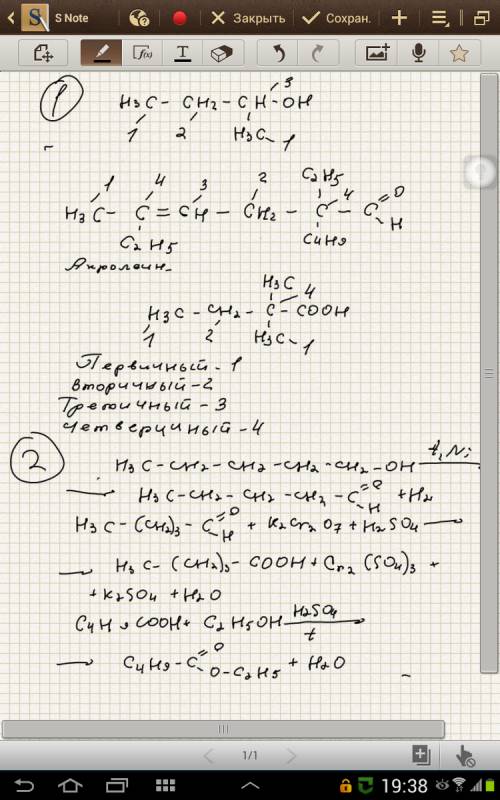 S Note
Закрыть
Сохран.
f(x)
T
1
3
H3C - CH2 - CH - OH
1 2 H3C 1
1 4 3 2 C2H5 4
H3C - C = CH - CH2 - C - C =O
C2H5 C4H9 H
Акролеин
H3C 4
H3C - CH2 - C - COOH
1 2 H3C 1
Первичный - 1
Вторичный - 2
Третичный - 3
Четверичный - 4
2
H3C - CH2 - CH2 - CH2 - CH2 - OH t, Ni
→ H3C - CH2 - CH2 - CH2 - C =O H + H2
H3C - (CH2)3 - C =O H + K2Cr2O7 + H2SO4 →
→ H3C - (CH2)3 - COOH + Cr2(SO4)3 +
+ K2SO4 + H2O
C4H9COOH + C2H5OH H2SO4 t →
→ C4H9 - C =O O - C2H5 + H2O
1/1
19:38